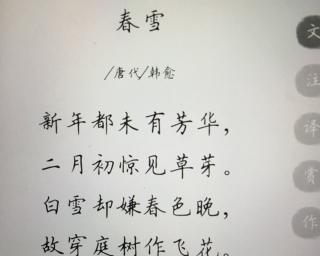 春雪
/唐代/韩愈
新年都未有芳华，
二月初惊见草芽。
白雪却嫌春色晚，
故穿庭树作飞花。
文
注
译
赏
作